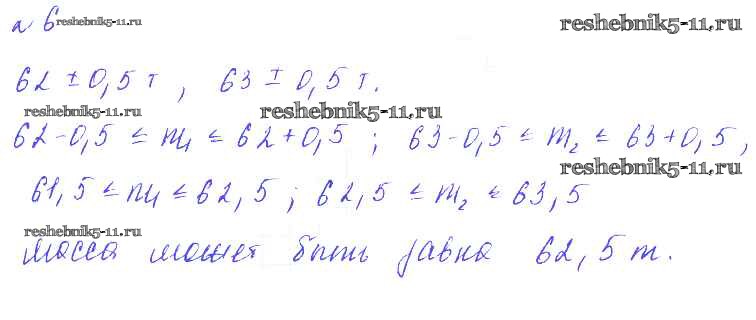 № 6 reshebnik5-11.ru reshebnik5-11.ru
62 ± 0,5 т, 63 ± 0,5 т.
reshebnik5-11.ru reshebnik5-11.ru
62-0,5 ≤ m₁ ≤ 62+0,5 ; 63-0,5 ≤ m₂ ≤ 63+0,5,
reshebnik5-11.ru
61,5 ≤ m₁ ≤ 62,5 ; 62,5 ≤ m₂ ≤ 63,5
reshebnik5-11.ru
масса может быть равна 62,5 т.